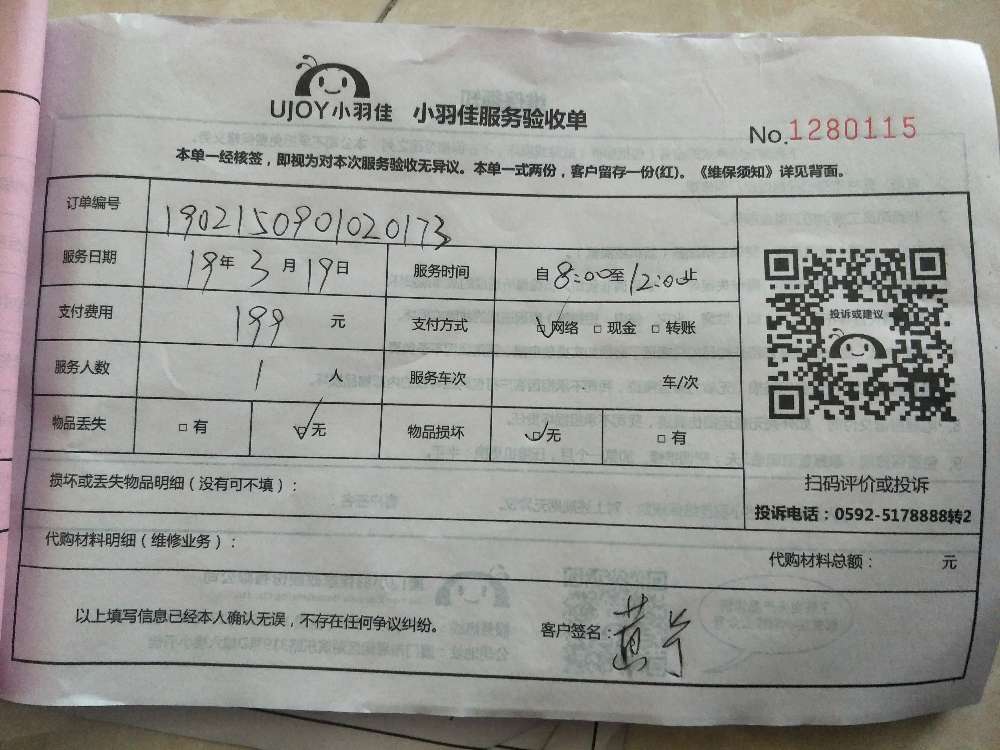 UJOY小羽佳 小羽佳服务验收单
No.1280115
本单一经核签，即视为对本次服务验收无异议。本单一式两份，客户留存一份(红)。《维保须知》详见背面。
订单编号 1902150901020173
服务日期 19年3月19日 服务时间 自8:00至12:00止
支付费用 199 元 支付方式 ☑网络 □现金 □转账
投诉或建议
服务人数 1 人 服务车次 车/次
物品丢失 □有 ☑无 物品损坏 ☑无 □有
损坏或丢失物品明细（没有可不填）：
扫码评价或投诉
投诉电话：0592-5178888转2
代购材料明细（维修业务）：
代购材料总额： 元
以上填写信息已经本人确认无误，不存在任何争议纠纷。 客户签名：黄宁